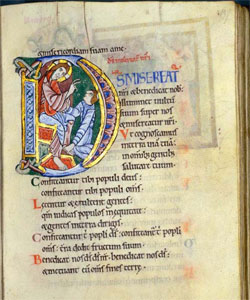 misericordiam suam ame.
DS MISEREAT
nri & benedicat nob
illuminet vultu
suum super nos &
misereatur nri
Ut cognoscam
in terra uia tua
in omnibus gentib;
salutare tuum.
Confiteantur tibi populi deus
confiteantur tibi populi oms.
Letentur & exultent gentes
qm iudicas populos in equitate
& gentes in terra dirigis.
Confiteantur tibi populi ds confiteantur tibi
populi oms : terra dedit fructum suum.
Benedicat nos ds ds nr benedicat nos ds
& metuant eum oms fines terre.